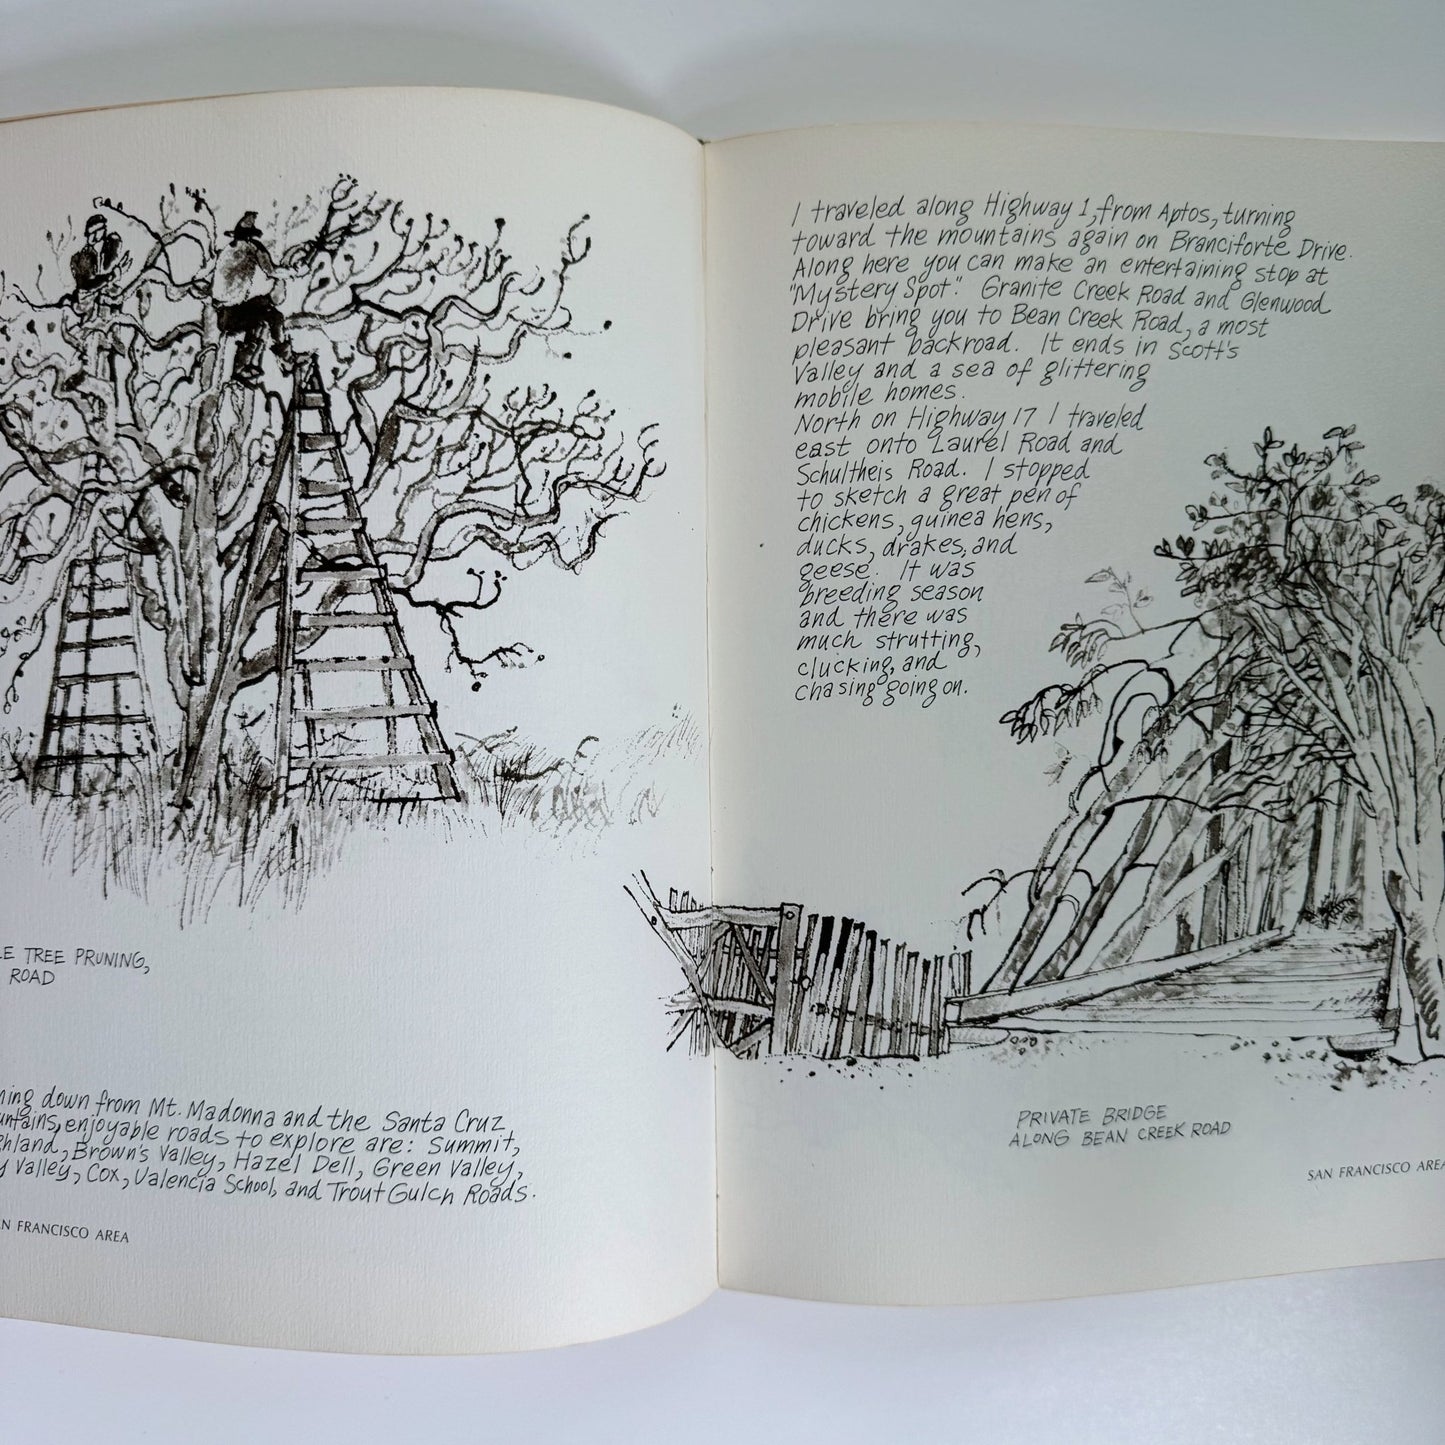 TREE PRUNING,
ROAD
down from Mt. Madonna and the Santa Cruz
enjoyable roads to explore are: Summit,
Brown's Valley, Hazel Dell, Green Valley,
Valley, Cox, Valencia School, and Trout Gulch Roads.
FRANCISCO AREA
I traveled along Highway 1, from Aptos, turning
toward the mountains again on Branciforte Drive.
Along here you can make an entertaining stop at
"Mystery Spot". Granite Creek Road and Glenwood
Drive bring you to Bean Creek Road, a most
pleasant backroad. It ends in Scott's
Valley and a sea of glittering
mobile homes.
North on Highway 17 I traveled
east onto Laurel Road and
Schultheis Road. I stopped
to sketch a great pen of
chickens, guinea hens,
ducks, drakes, and
geese. It was
breeding season
and there was
much strutting,
clucking, and
chasing going on.
PRIVATE BRIDGE
ALONG BEAN CREEK ROAD
SAN FRANCISCO AREA